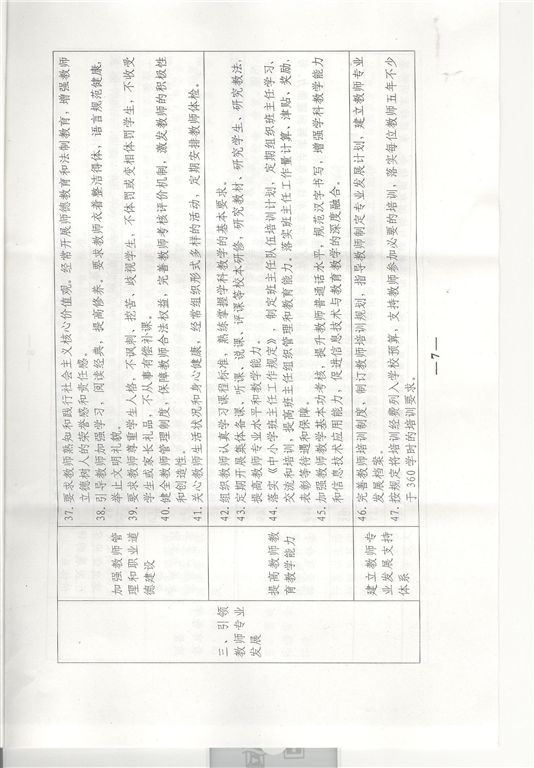 三、引领
教师专业
发展
加强教师管
理和职业道
德建设
37. 要求教师熟知和践行社会主义核心价值观，经常开展师德教育和法制教育，增强教师
立德树人的荣誉感和责任感。
38. 引导教师加强学习，阅读经典，提高修养。要求教师衣着整洁得体，语言规范健康，
举止文明礼貌。
39. 要求教师尊重学生人格，不讽刺、挖苦、歧视学生，不体罚或变相体罚学生，不收受
学生或家长礼品，不从事有偿补课。
40. 健全教师管理制度，保障教师合法权益，完善教师考核评价机制，激发教师的积极性
和创造性。
41. 关心教师生活状况和身心健康，经常组织形式多样的活动，定期安排教师体检。
提高教师教
育教学能力
42. 组织教师认真学习课程标准，熟练掌握学科教学的基本要求。
43. 定期开展集体备课、听课、说课、评课等校本研修，研究教材、研究学生、研究教法，
提高教师专业水平和教学能力。
44. 落实《中小学班主任工作规定》，制定班主任队伍培训计划，定期组织班主任学习、
交流和培训，提高班主任组织管理和教育能力。落实班主任工作量计算、津贴、奖励、
表彰等待遇和保障。
45. 加强教师教学基本功考核，提升教师普通话水平，规范汉字书写，增强学科教学能力
和信息技术应用能力，促进信息技术与教育教学的深度融合。
建立教师专
业发展支持
体系
46. 完善教师培训制度、制订教师培训规划，指导教师制定专业发展计划，建立教师专业
发展档案。
47. 按规定将培训经费列入学校预算，支持教师参加必要的培训，落实每位教师五年不少
于360学时的培训要求。
—7—